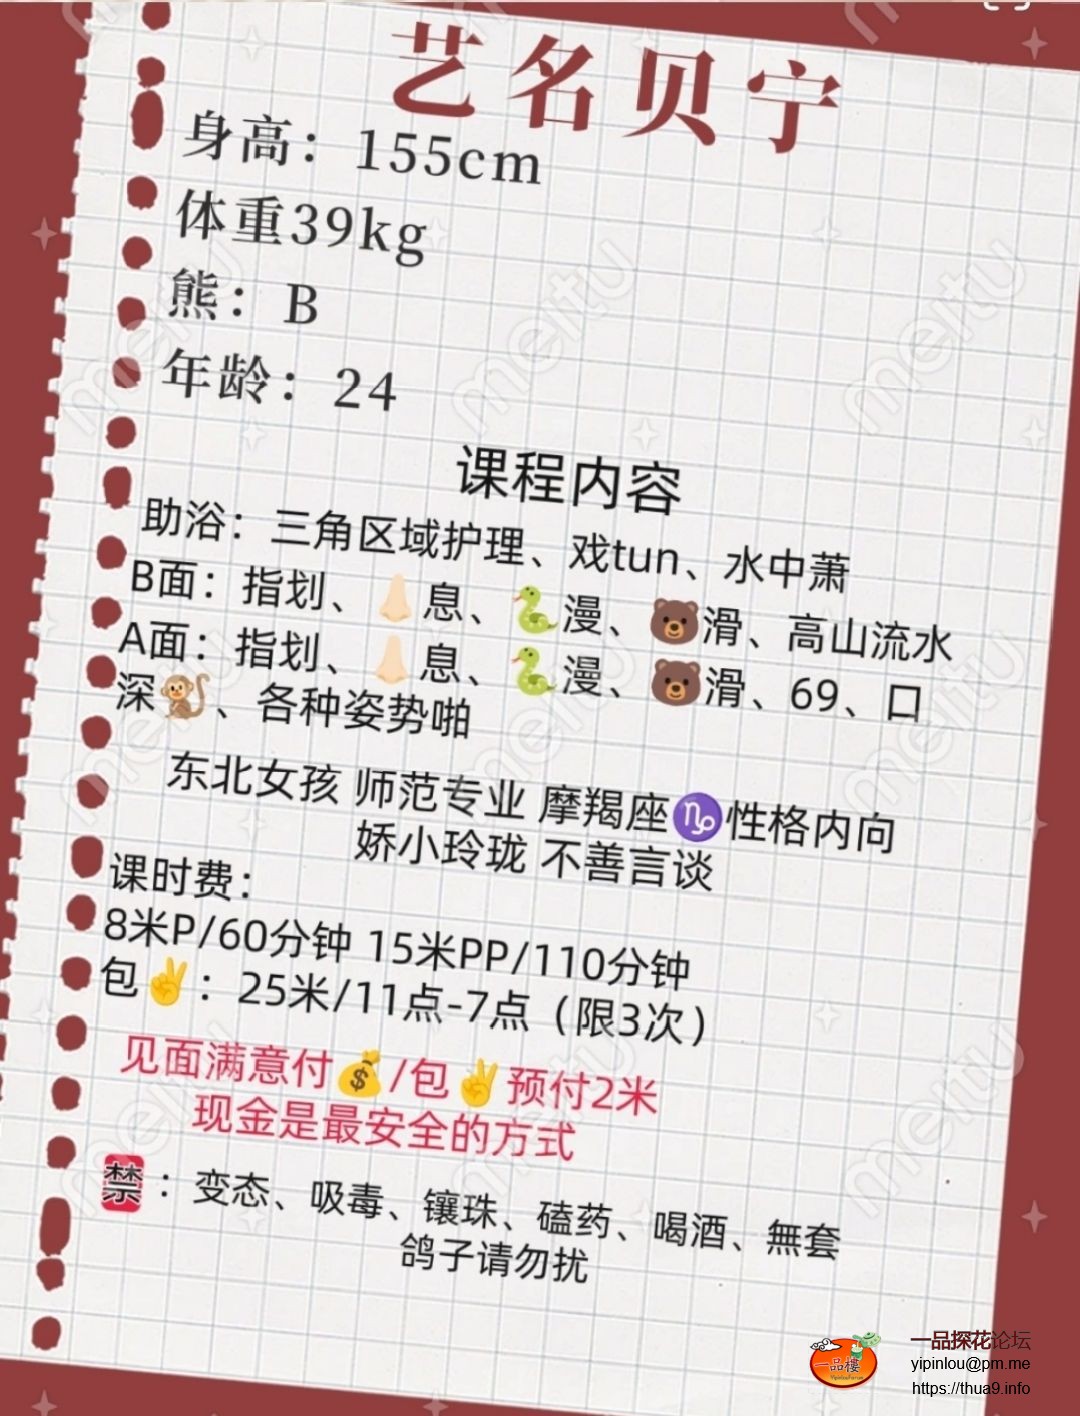 艺名贝宁
身高：155cm
体重39kg
熊：B
年龄：24
课程内容
助浴：三角区域护理、戏tun、水中萧
B面：指划、👃息、🐍漫、🐻滑、高山流水
A面：指划、👃息、🐍漫、🐻滑、69、口
深🐒、各种姿势啪
东北女孩 师范专业 摩羯座♑性格内向
娇小玲珑 不善言谈
课时费：
8米P/60分钟 15米PP/110分钟
包✌️：25米/11点-7点（限3次）
见面满意付💰/包✌️预付2米
现金是最安全的方式
禁：变态、吸毒、镶珠、磕药、喝酒、無套
鸽子请勿扰
meitu
一品楼
一品探花论坛
yipinlou@pm.me
https://thua9.info